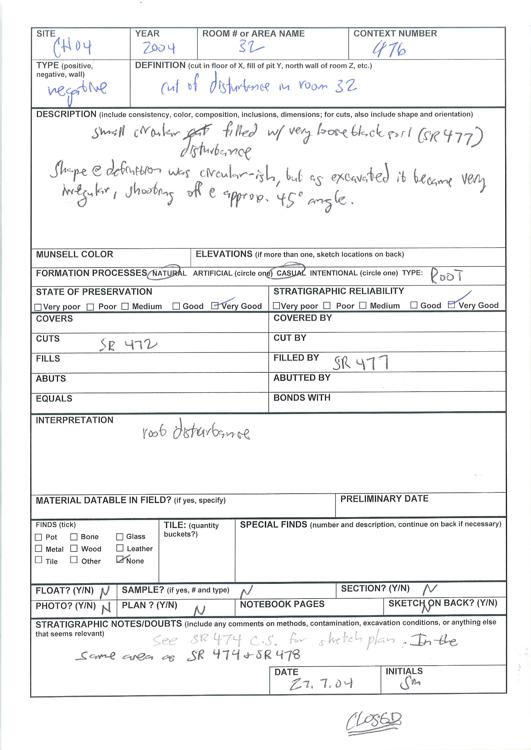 SITE YEAR ROOM # or AREA NAME CONTEXT NUMBER
CH04 2004 32 476
TYPE (positive, negative, wall) DEFINITION (cut in floor of X, fill of pit Y, north wall of room Z, etc.)
negative cut of disturbance in room 32
DESCRIPTION (include consistency, color, composition, inclusions, dimensions; for cuts, also include shape and orientation)
small circular filled w/ very loose black soil (SR 477)
disturbance
Shape @ definition was circular-ish, but as excavated it became very
irregular, shooting off @ approp. 45° angle.
MUNSELL COLOR ELEVATIONS (if more than one, sketch locations on back)
FORMATION PROCESSES NATURAL ARTIFICIAL (circle one) CASUAL INTENTIONAL (circle one) TYPE: ROOT
STATE OF PRESERVATION STRATIGRAPHIC RELIABILITY
Very poor Poor Medium Good Very Good Very poor Poor Medium Good Very Good
COVERS COVERED BY
CUTS SR 472 CUT BY
FILLS FILLED BY SR 477
ABUTS ABUTTED BY
EQUALS BONDS WITH
INTERPRETATION
root disturbance
MATERIAL DATABLE IN FIELD? (if yes, specify) PRELIMINARY DATE
FINDS (tick) TILE: (quantity buckets?) SPECIAL FINDS (number and description, continue on back if necessary)
Pot Bone Glass
Metal Wood Leather
Tile Other None
FLOAT? (Y/N) N SAMPLE? (if yes, # and type) N SECTION? (Y/N) N
PHOTO? (Y/N) N PLAN ? (Y/N) N NOTEBOOK PAGES SKETCH ON BACK? (Y/N) N
STRATIGRAPHIC NOTES/DOUBTS (include any comments on methods, contamination, excavation conditions, or anything else
that seems relevant)
See SR 474 C.S. for sketch plan. In the
same area as SR 474 + SR 478
DATE INITIALS
27.7.04 SM
CLOSED